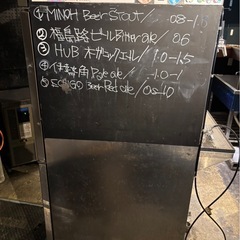 ① MINOH Beer Stout / 0.8-1.
② 福島路ビール Bitter ale / 0.6
③ HUB オーガニックエール / 1.0-1.5
④ 伊勢角 Pale ale / -1.0-1
⑤ ECHIGO Beer Red ale / 0.5-1.0